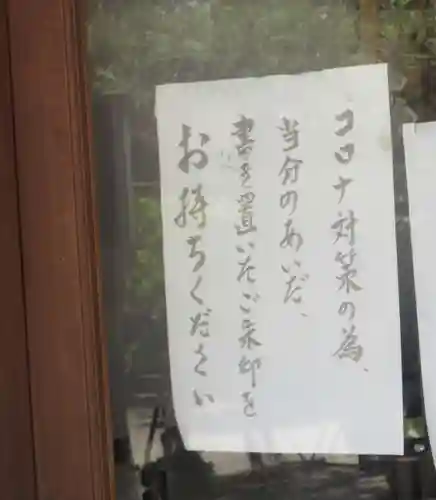 コロナ対策の為、
当分のあいだ、
書き置いたご朱印を
お持ちください